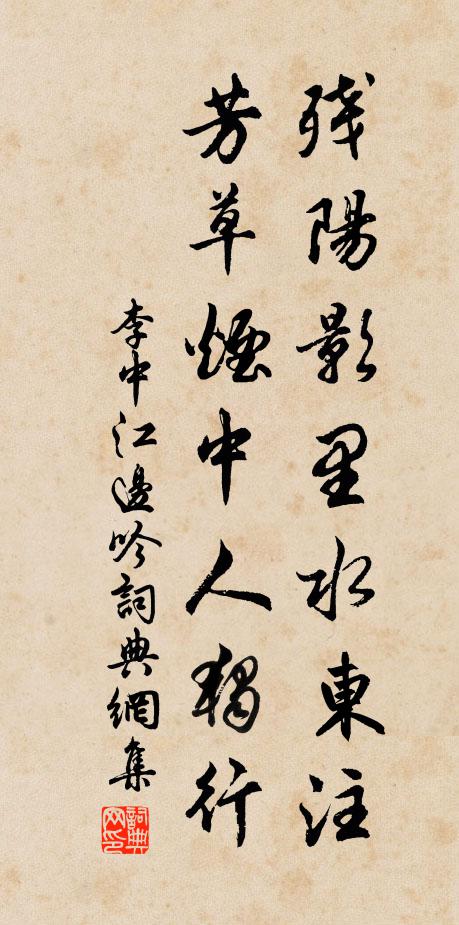 残陽影里水東注
芳草煙中人獨行
李中江邊吟詞典網集
詞典網印